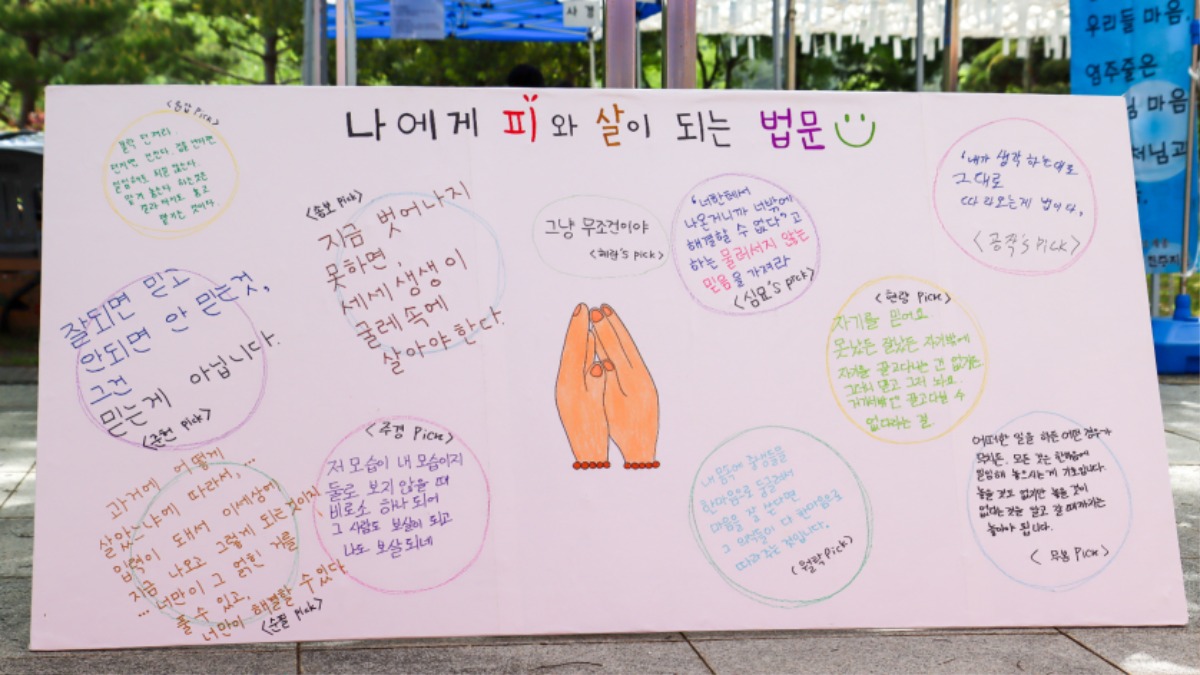 나에게 피와 살이 되는 법문
사경
우리들 마음
염주줄은
마음
<송보 Pick>
지금 벗어나지
못하면,
세세생생 이
굴레 속에
살아야 한다.
그냥 무조건이야
<혜람's pick>
"너한테서
나온거니까 너밖에
해결할 수 없다"고
하는 물러서지 않는
믿음을 가져라
<심묘's pick>
'내가 생각하는대로
그대로
따라오는게 법이다,
<공작's PICK>
잘되면 믿고
안되면 안 믿는것,
그건
믿는게 아닙니다.
Pick>
<현람 PICK>
자기를 믿어요
못났든 잘났든 자기밖에
자기를 끌고다니는 건 없거든
그러니 믿고 그저 놔요.
끌고다닐 수
없다라는 걸.
과거에 어떻게
살았느냐에 따라서, ...
입력이 돼서 이세상에
지금 나오고 그렇게 되는것이지
... 너만이 그 얽힌 거를
풀 수 있고,
너만이 해결할 수 있다
<순필 PICK>
<주경 PICK>
저 모습이 내 모습이지
둘로 보지 않을 때
비로소 하나 되어
그 사람도 보살이 되고
나도 보살 되네
내 몸속에 중생들을
한마음으로 둥글려서
마음을 잘 쓴다면
그 의식들이 다 한마음으로
따라주는 것입니다.
<월락 PICK>
어떠한 일을 하든 어떤 경우가
닥치든, 모든 것은 한마음에
일임해 놓으시는게 기도입니다.
놓을 것도 없지만 놓을 것이
없다는 것을 알고 갈 때까지는
놓아야 됩니다.
< 무용 PICK>